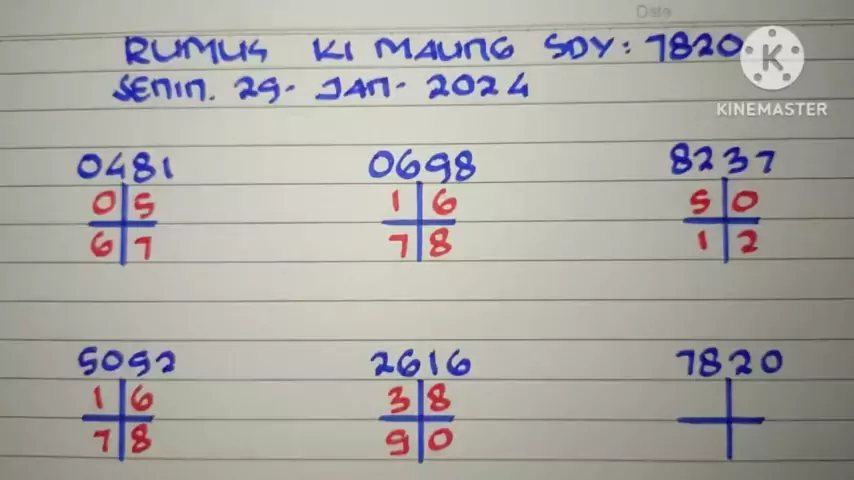 Date
RUMUS KI MAUNG SDY: 7820
SENIN. 29- JAN- 2024
KINEMASTER
0481 0698 8237
0 5 1 6 5 0
6 7 7 8 1 2
5092 2616 7820
1 6 3 8
7 8 9 0